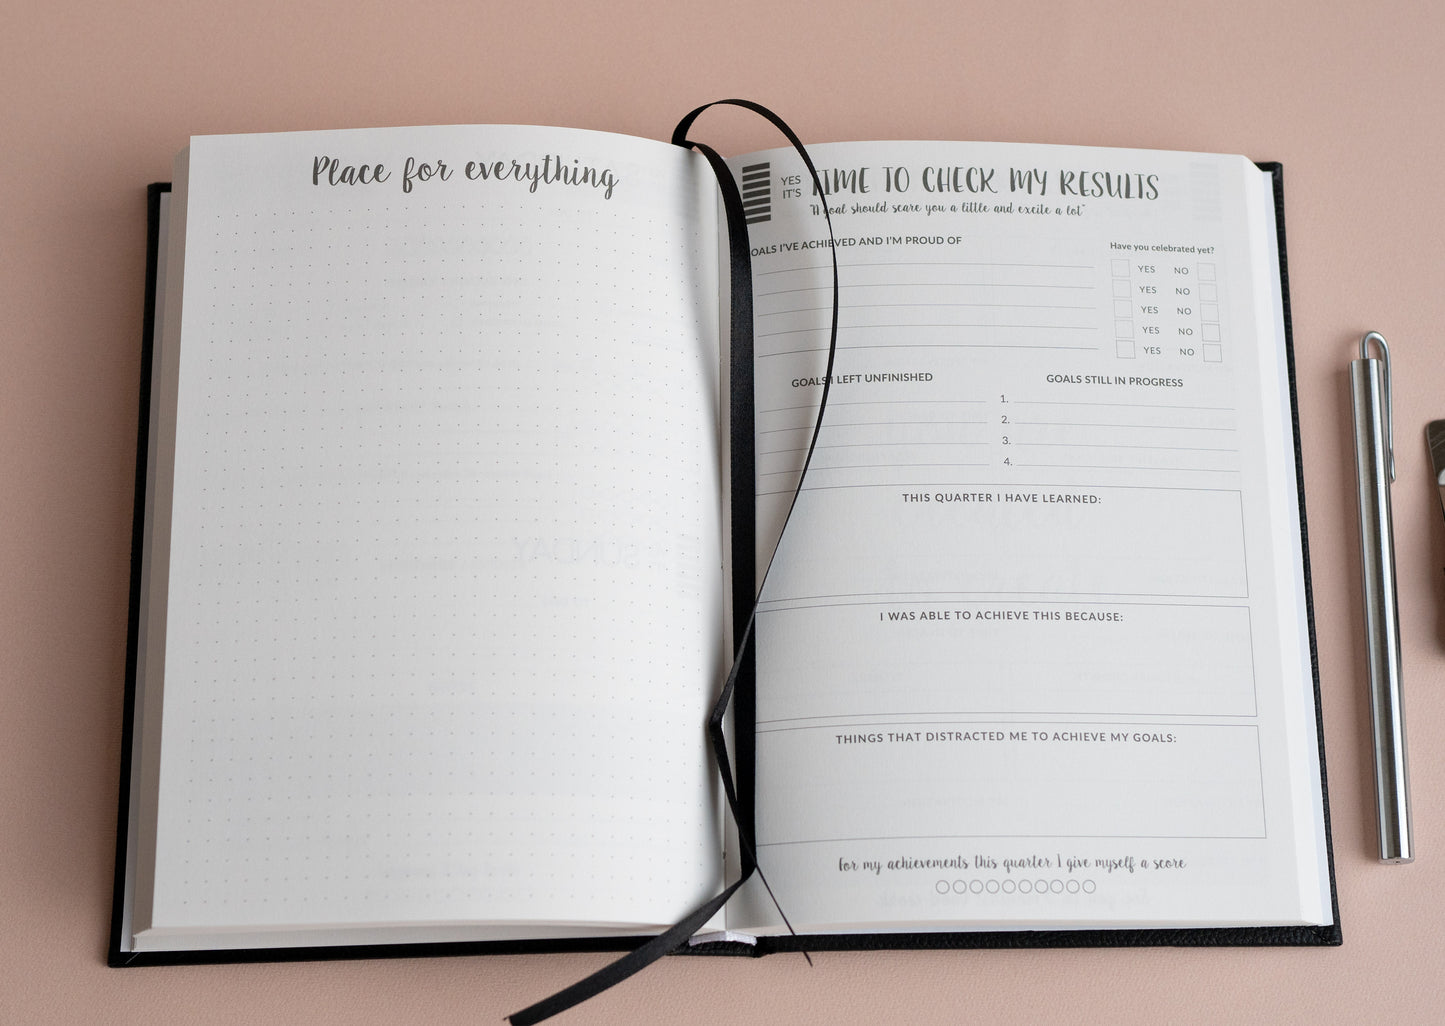 Place for everything
YES
IT'S
TIME TO CHECK MY RESULTS
"A goal should scare you a little and excite a lot"
OALS I'VE ACHIEVED AND I'M PROUD OF
Have you celebrated yet?
YES NO
YES NO
YES NO
YES NO
YES NO
GOALS I LEFT UNFINISHED
GOALS STILL IN PROGRESS
1.
2.
3.
4.
THIS QUARTER I HAVE LEARNED:
I WAS ABLE TO ACHIEVE THIS BECAUSE:
THINGS THAT DISTRACTED ME TO ACHIEVE MY GOALS:
For my achievements this quarter I give myself a score
SUNDAY